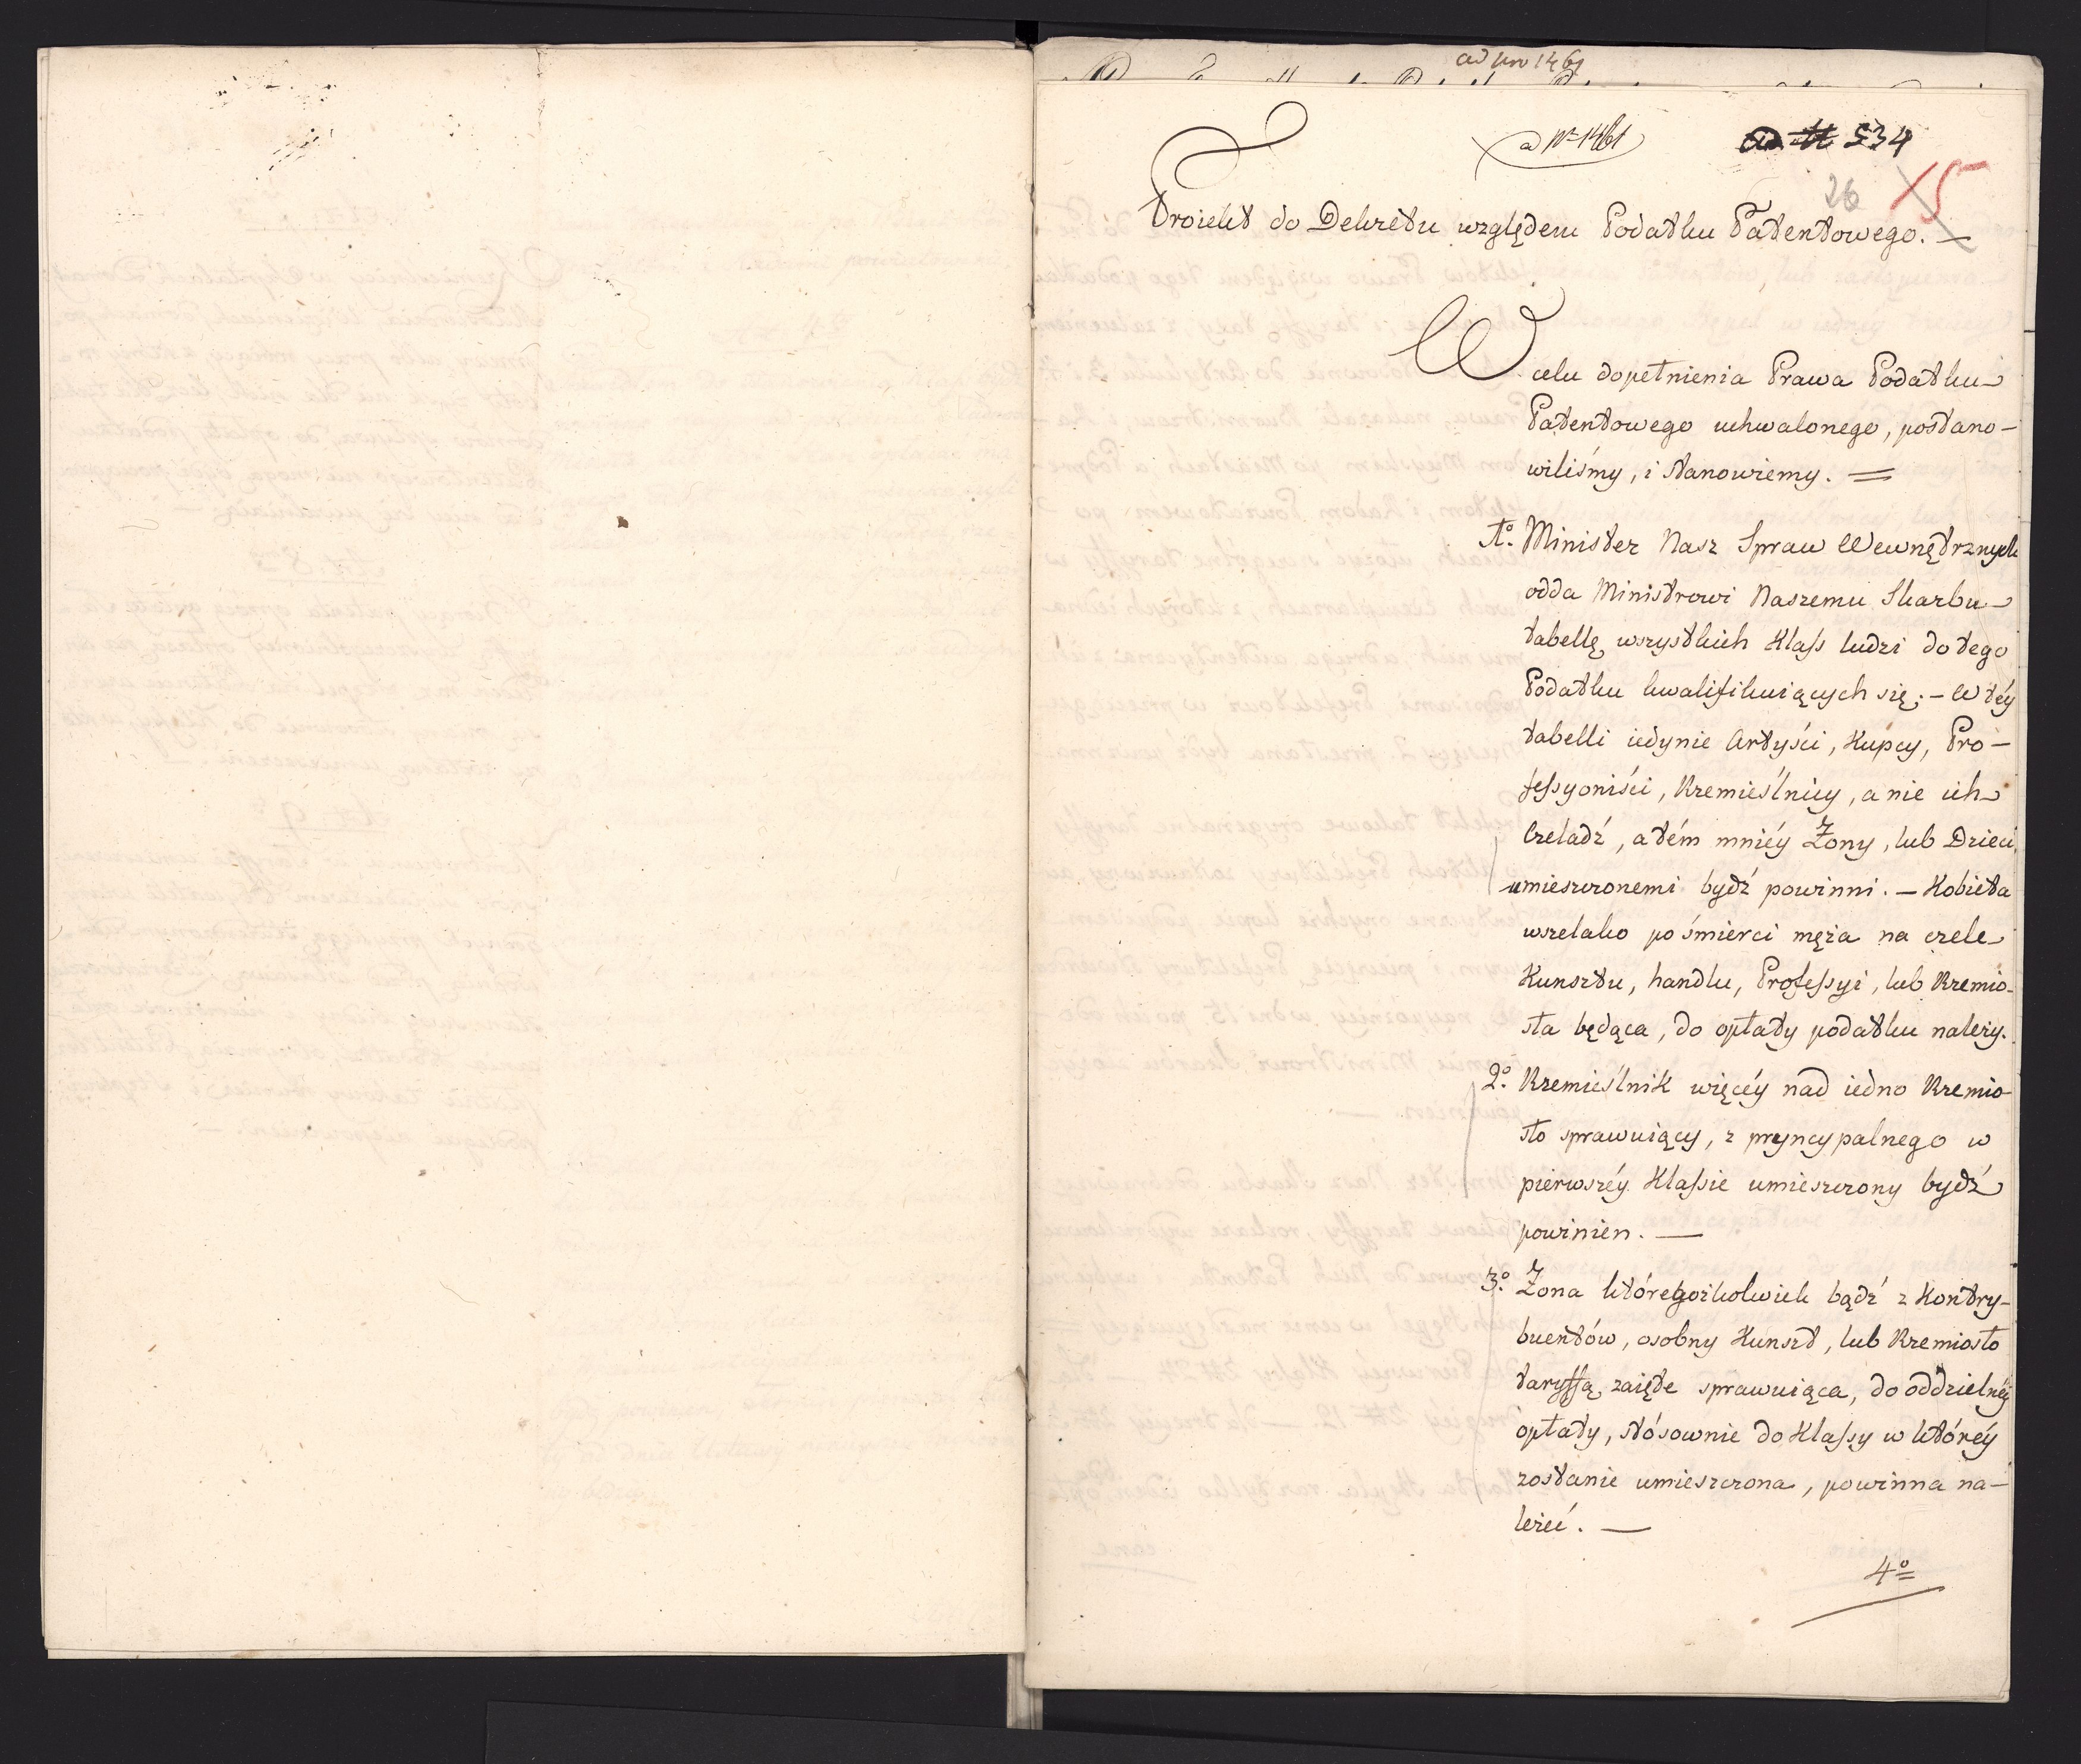 ad Nro 1461
a Nr 1461
ad N 534
26
15
Proiekt do Dekretu względem Podatku Patentowego. —
W celu dopełnienia Prawa Podatku
Patentowego uchwalonego, postano-
wiliśmy, i stanowiemy. =
1o. Minister Nasz Spraw Wewnętrznych
odda Ministrowi Naszemu Skarbu
tabellę wszystkich Klass ludzi do tego
Podatku kwalifikuiących się; — W téy
tabelli iedynie Artyści, Kupcy, Pro-
fessyoniści, Rzemieślnicy, a nie ich
Czeladź, a tém mniéy Żony, lub Dzieci,
umieszczonemi bydź powinni. — Kobieta
wszelako po śmierci męża na czele
Kunsztu, handlu, Professyi, lub Rzemio-
sła będąca, do opłaty podatku należy.
2o. Rzemieślnik więcéy nad iedno Rzemio-
sło sprawuiący, z pryncypalnego w
pierwszéy Klassie umieszczony bydź
powinien. —
3o. Żona któregożkolwiek bądź z Kontry-
buentów, osobny Kunszt, lub Rzemiosło
taryffą zaięte sprawuiąca, do oddzielnéy
opłaty, stósownie do Klassy w któréy
zostanie umieszczona, powinna na-
leżeć. —
4o